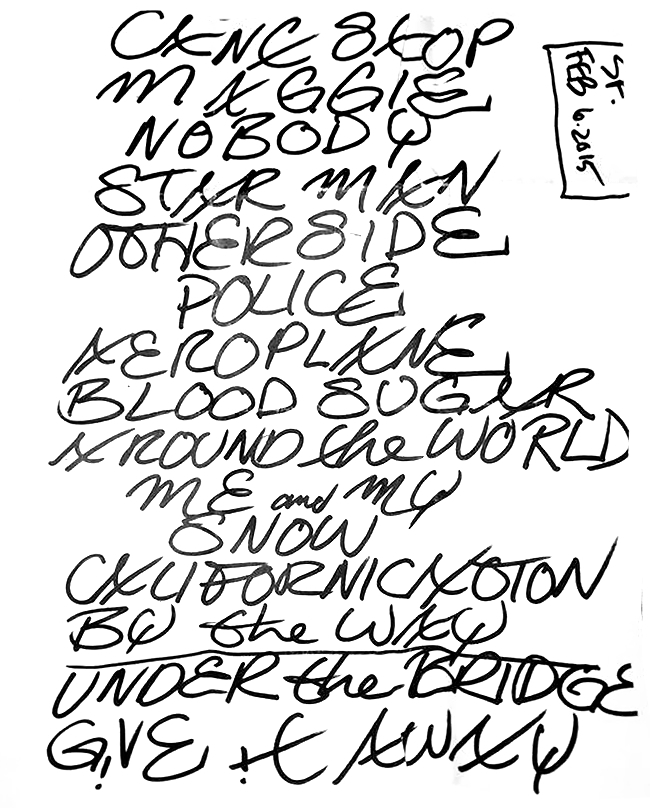 CAN'T STOP
MAGGIE
NOBODY
STAR MAN
OTHERSIDE
POLICE
AEROPLANE
BLOOD SUGAR
AROUND the WORLD
ME and MY
SNOW
CALIFORNICATION
BY the WAY
UNDER the BRIDGE
GIVE it AWAY
ST.
FEB 6.2015